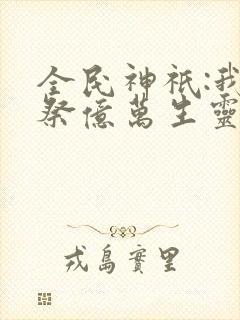 全民神祇:我
祭億萬生靈
戎島實里